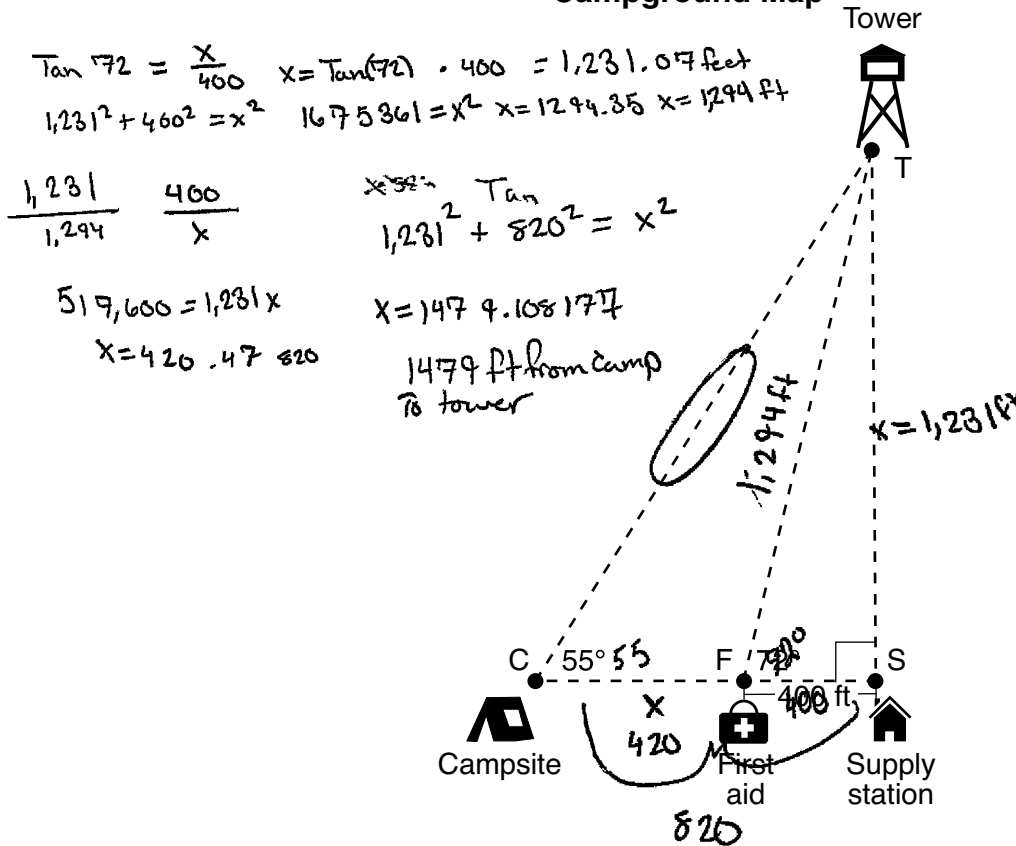 Campground Map
Tower
Tan 72 = x/400 x=Tan(72) · 400 = 1,231.07 feet
1,231² + 400² = x² 1675361 = x² x=1294.35 x=1294 ft
T
1,231/1,294 400/x
Tan
1,231² + 820² = x²
517,600 = 1,231x
x=420.47 820
x=1479.108177
1479 ft from camp
To tower
1,294 ft
x=1,231 ft
C 55° 55 F 72° S
400 ft 400
x
420
Campsite
First
aid
Supply
station
820